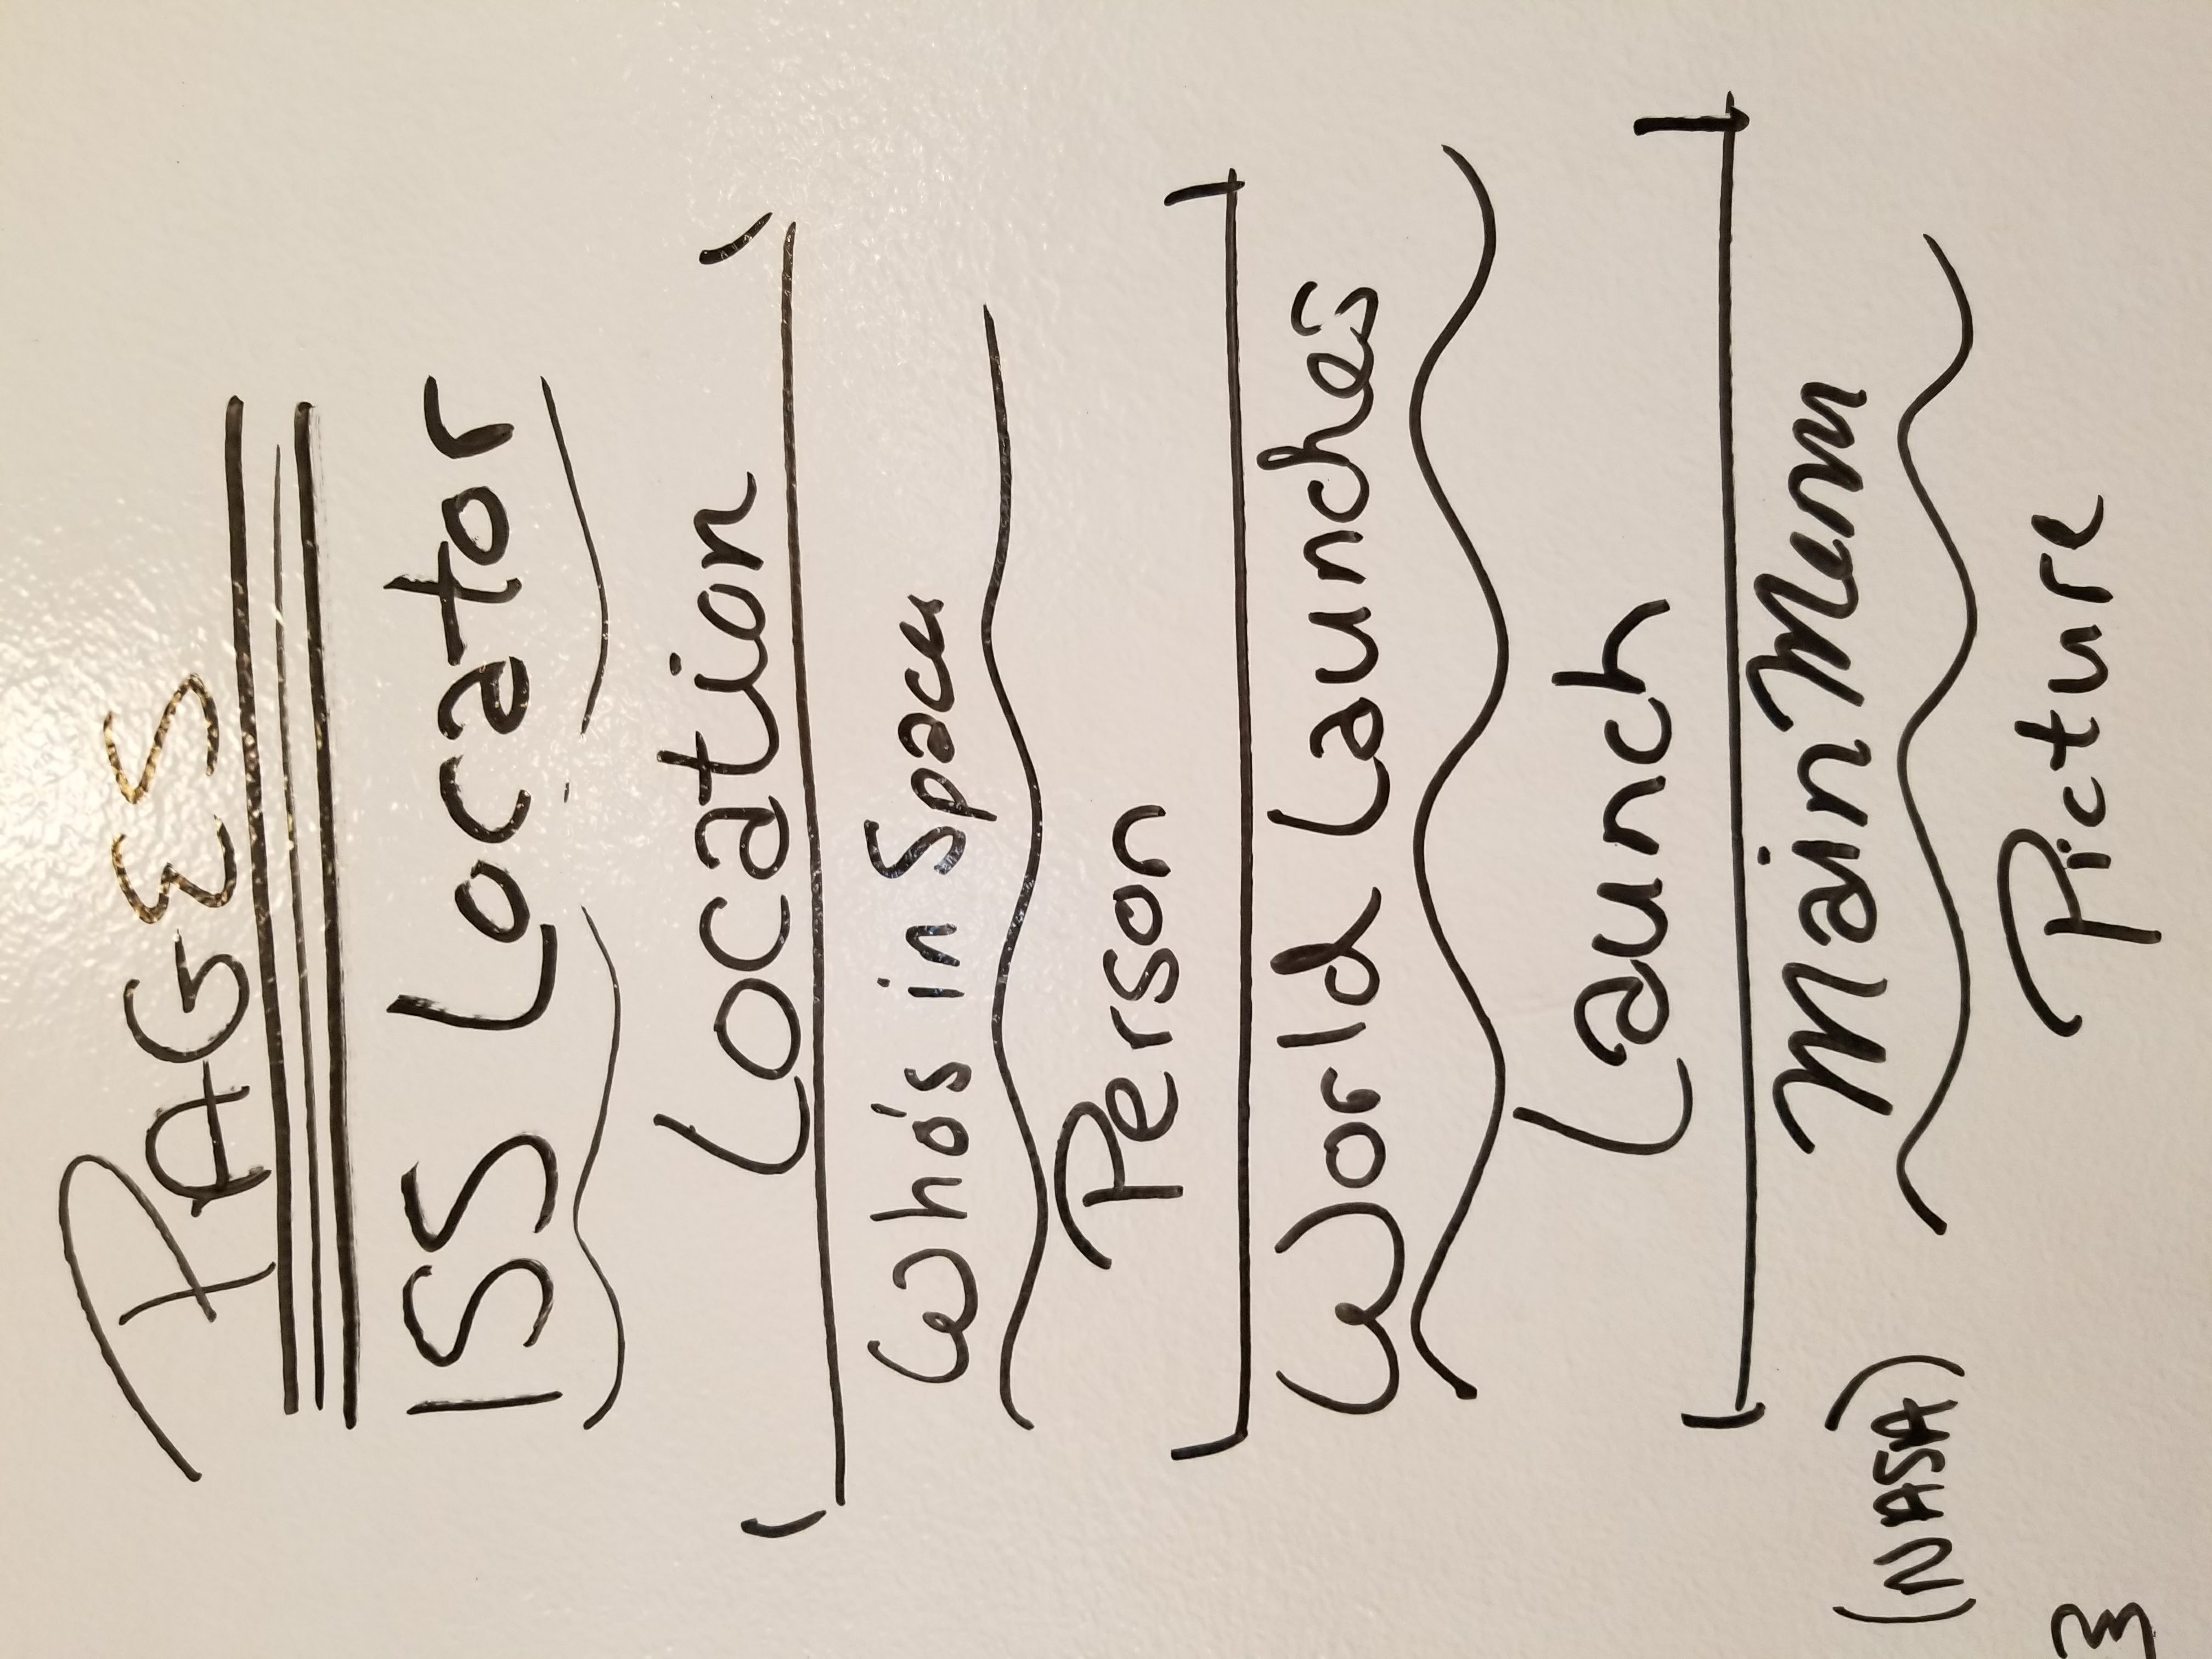 PAGES
ISS Locator
Location
Who's in Space
Person
World Launches
Launch
Main Menu
(NASA)
Picture